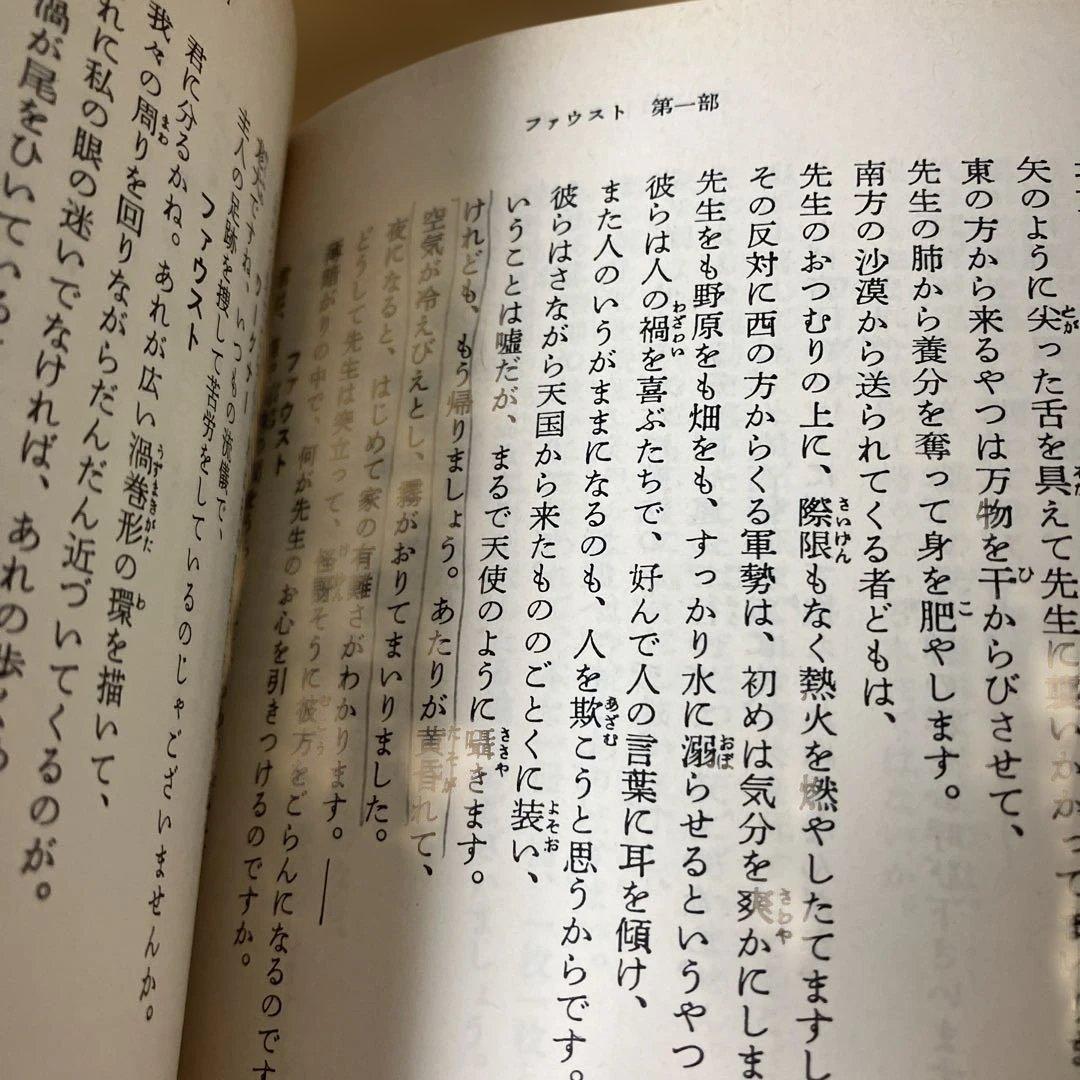 ファウスト 第一部
矢のように尖った舌を具えて先生に襲いかかって
東の方から来るやつは万物を干からびさせて、
先生の肺から養分を奪って身を肥やします。
南方の沙漠から送られてくる者どもは、
先生のおつむりの上に、際限もなく熱火を燃やしたてますし
その反対に西の方からくる軍勢は、初めは気分を爽かにしま
先生をも野原をも畑をも、すっかり水に溺らせるというやつ
彼らは人の禍を喜ぶたちで、好んで人の言葉に耳を傾け、
また人のいうがままになるのも、人を欺こうと思うからです。
彼らはさながら天国から来たもののごとくに装い、
いうことは嘘だが、まるで天使のように囁きます。
けれども、もう帰りましょう。あたりが黄昏れて、
空気が冷えびえとし、霧がおりてまいりました。
夜になると、はじめて家の有難さがわかります。――
どうして先生は突立って、怪訝そうに彼方をごらんになるのです
薄暗がりの中で、何が先生のお心を引きつけるのですか。
ファウスト
ですね、いつもの流儀で、
主人の足跡を捜して苦労をしているのじゃございませんか。
ファウスト
君に分るかね。あれが広い渦巻形の環を描いて、
我々の周りを回りながらだんだん近づいてくるのが。
れに私の眼の迷いでなければ、あれの歩く
渦が尾をひいている